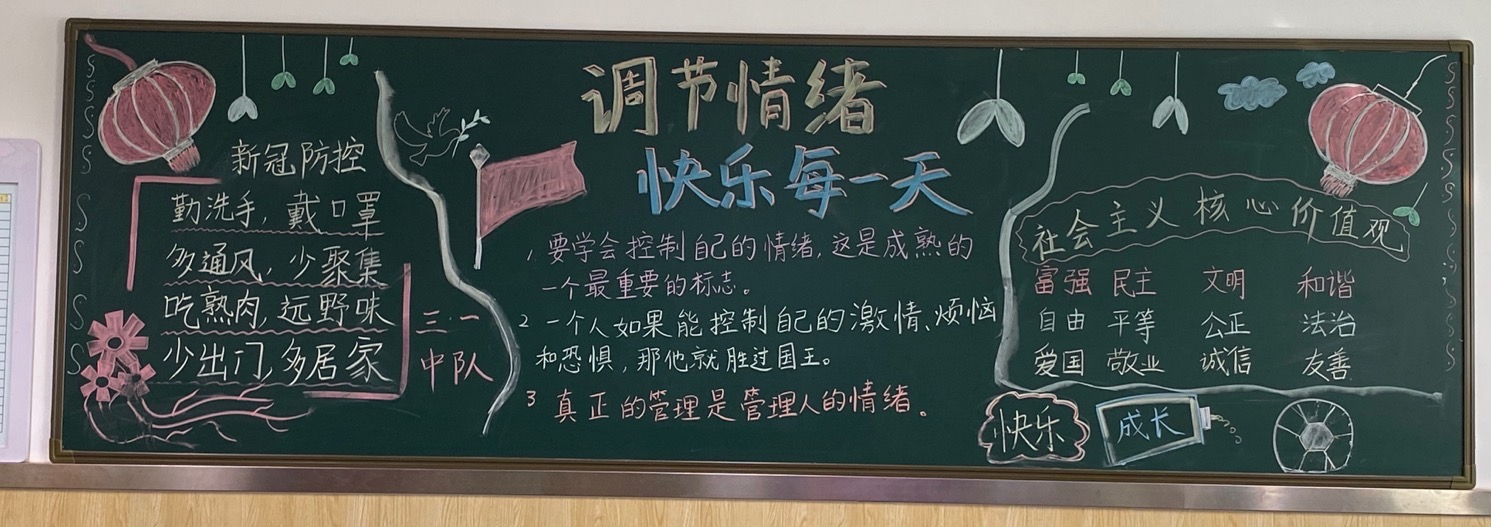 新冠防控
勤洗手，戴口罩
多通风，少聚集
吃熟肉，远野味
少出门，多居家
三·一
中队
调节情绪
快乐每一天
1、要学会控制自己的情绪，这是成熟的
一个最重要的标志。
2 一个人如果能控制自己的激情、烦恼
和恐惧，那他就胜过国王。
3 真正的管理是管理人的情绪。
社会主义核心价值观
富强 民主 文明 和谐
自由 平等 公正 法治
爱国 敬业 诚信 友善
快乐
成长